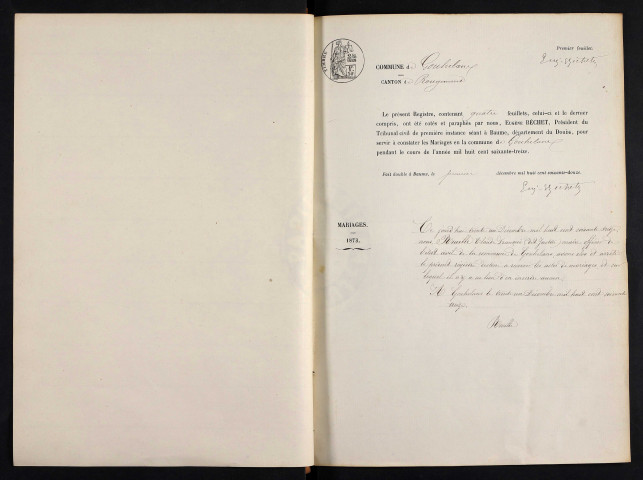 Premier feuillet.
COMMUNE d
CANTON d Rougemont
Le présent Registre, contenant quatre feuillets, celui-ci et le dernier
compris, ont été cotés et paraphés par nous, EUGÈNE BÉCHET, Président du
Tribunal civil de première instance séant à Baume, département du Doubs, pour
servir à constater les Mariages en la commune d
pendant le cours de l'année mil huit cent soixante-treize.
Fait double à Baume, le premier décembre mil huit cent soixante-douze.
MARIAGES.
1873.
Ce jourd'hui trente un Décembre mil huit cent soixante treize
nous maire, officier de
l'état civil de la commune de avons clos et arrêté
le présent registre destiné à recevoir les actes de mariages et sur
lequel il n'y a eu lieu d'en inscrire aucun.
A le trente un Décembre mil huit cent soixante
treize.